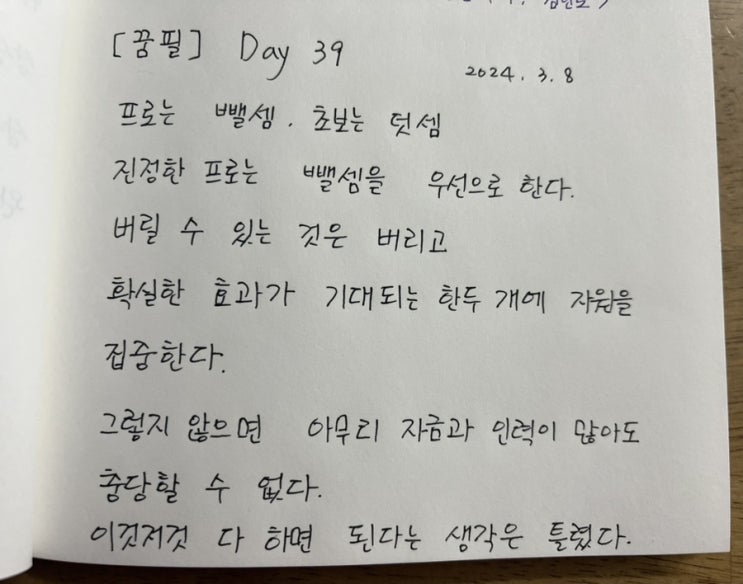 [꿈필] Day 39
2024. 3. 8
프로는 뺄셈. 초보는 덧셈
진정한 프로는 뺄셈을 우선으로 한다.
버릴 수 있는 것은 버리고
확실한 효과가 기대되는 한두 개에 자원을
집중한다.
그렇지 않으면 아무리 자금과 인력이 많아도
충당할 수 없다.
이것저것 다 하면 된다는 생각은 틀렸다.